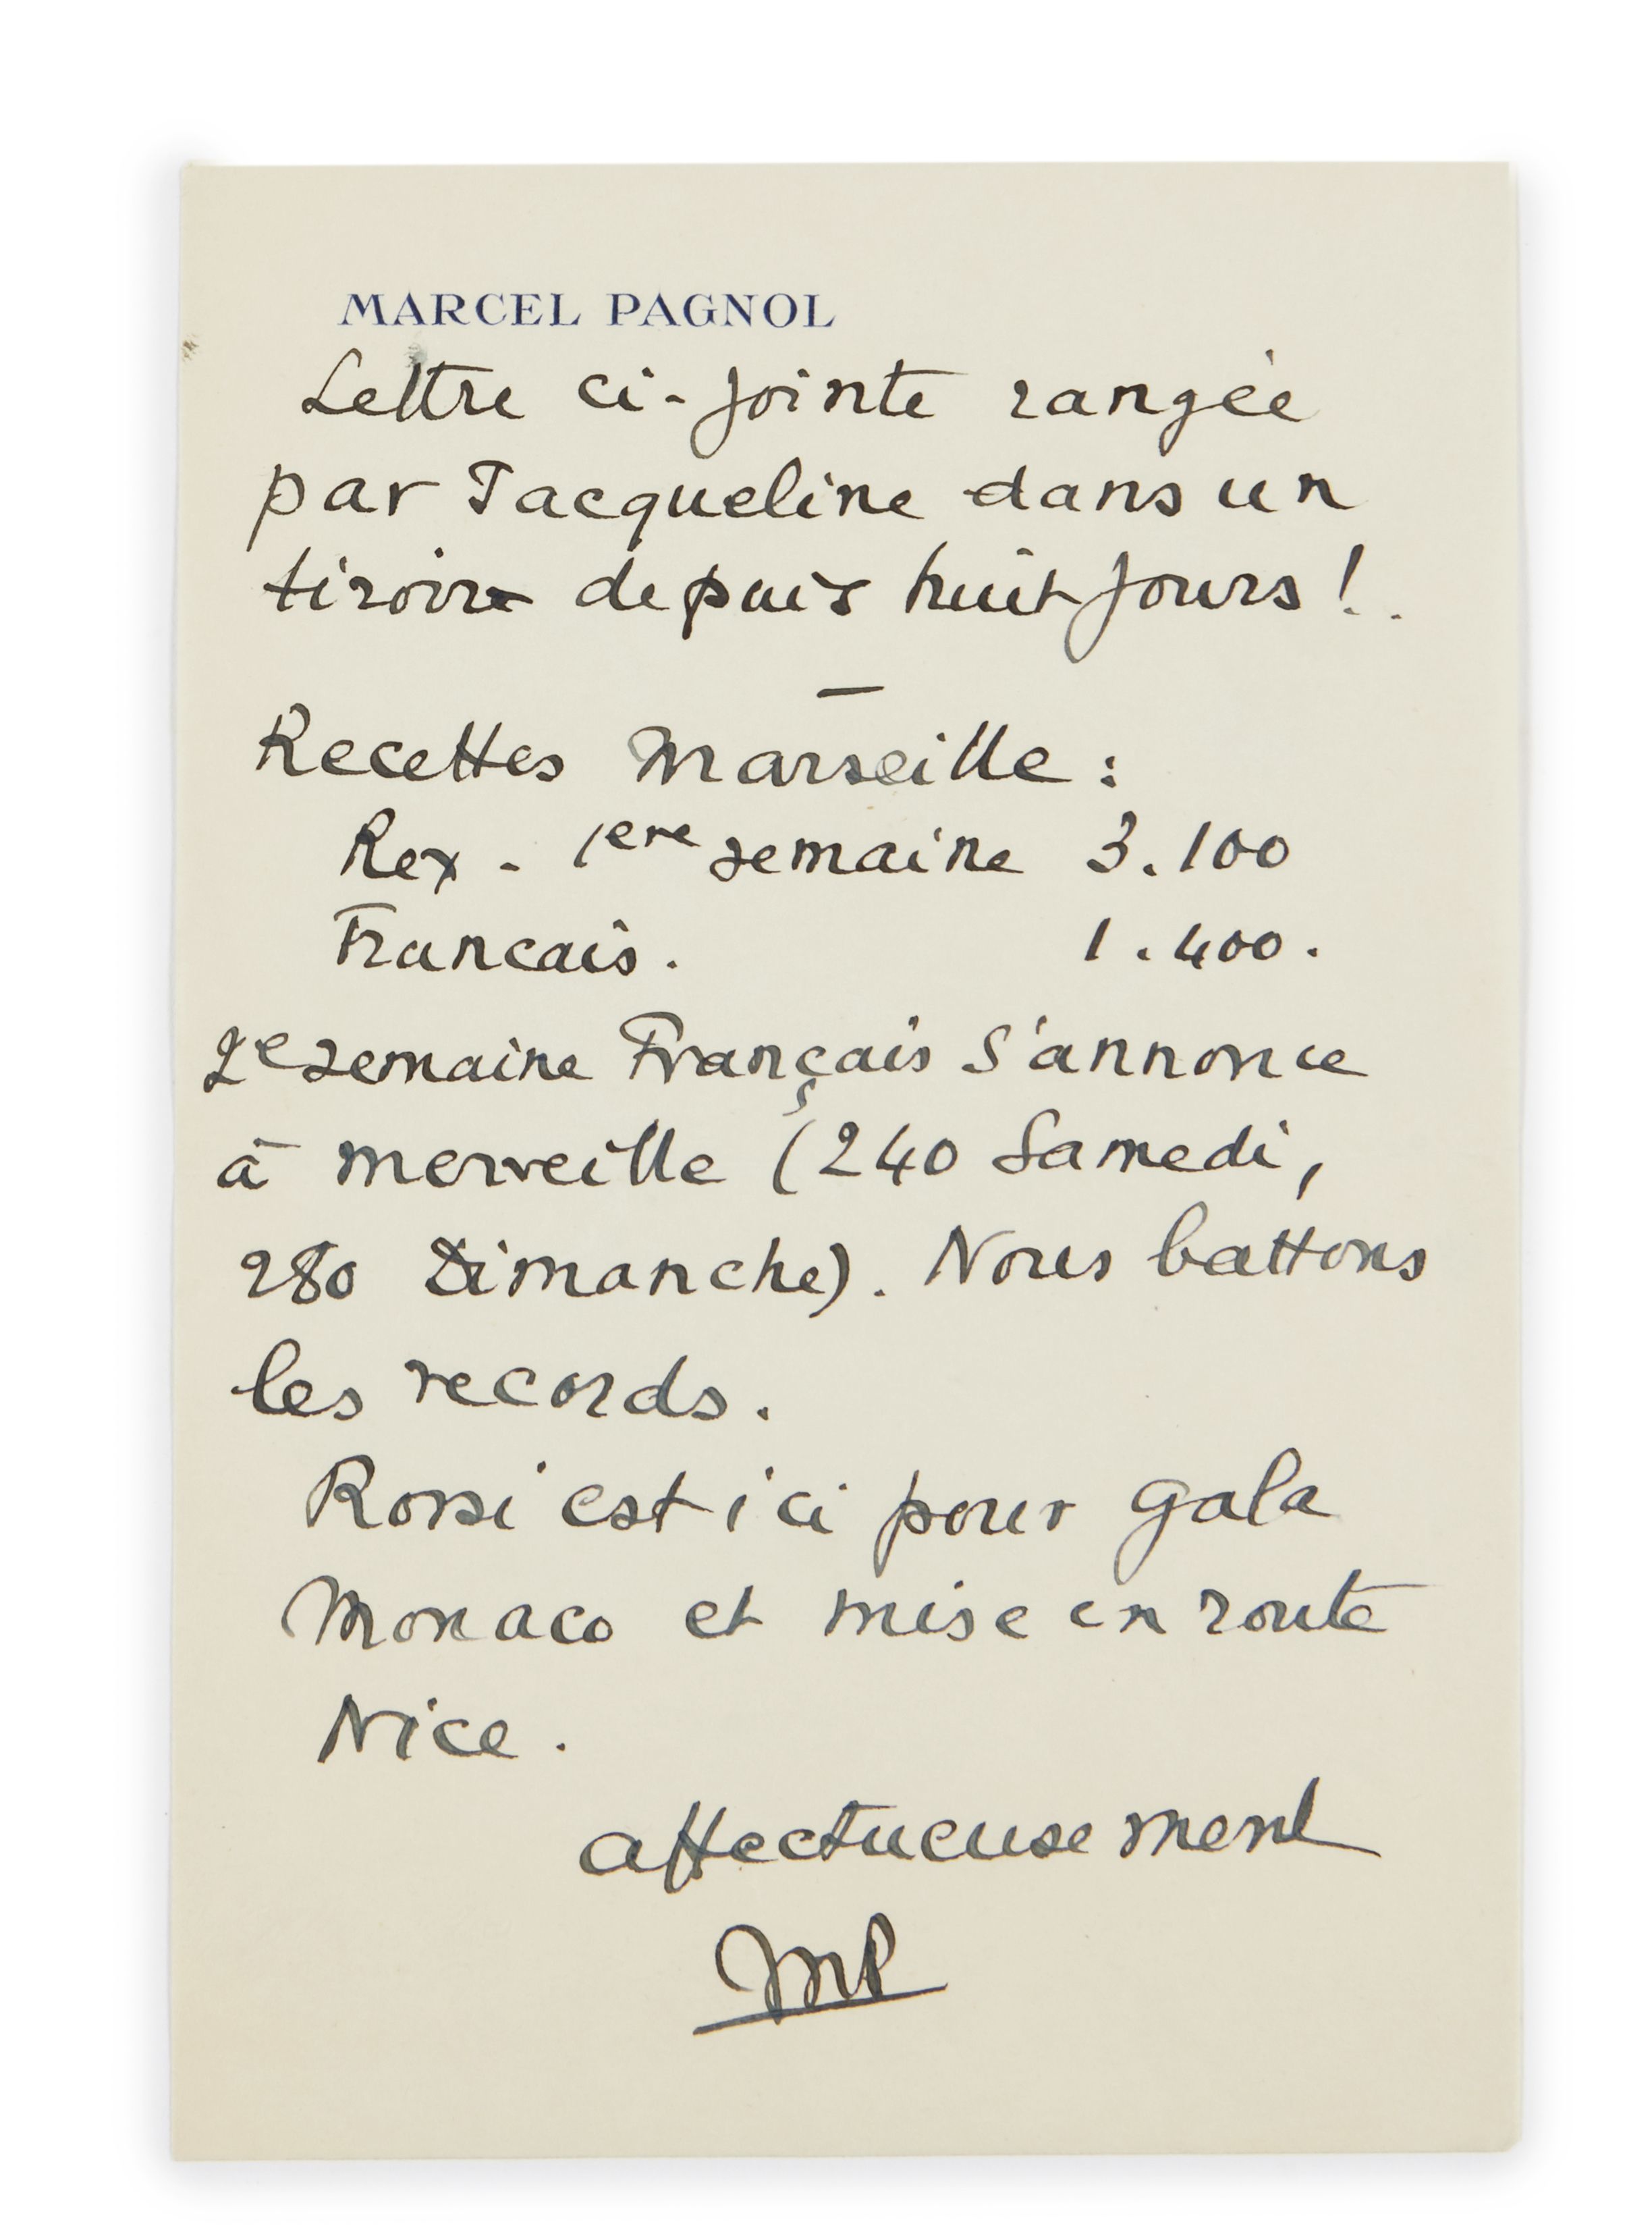 MARCEL PAGNOL
Lettre ci-jointe rangée
par Jacqueline dans un
tiroir depuis huit jours !.
—
Recettes Marseille :
Rex - 1ere semaine 3.100
Francais. 1.400.
2e semaine Français s'annonce
à merveille (240 Samedi,
280 Dimanche). Nous battons
les records.
Rossi est ici pour gala
Monaco et mise en route
Nice.
affectueusement
MP